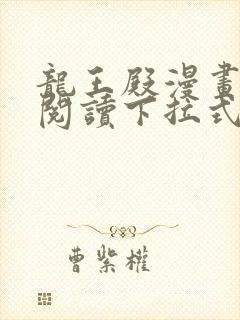 龍王殿漫畫
閱讀下拉式
曹紫權